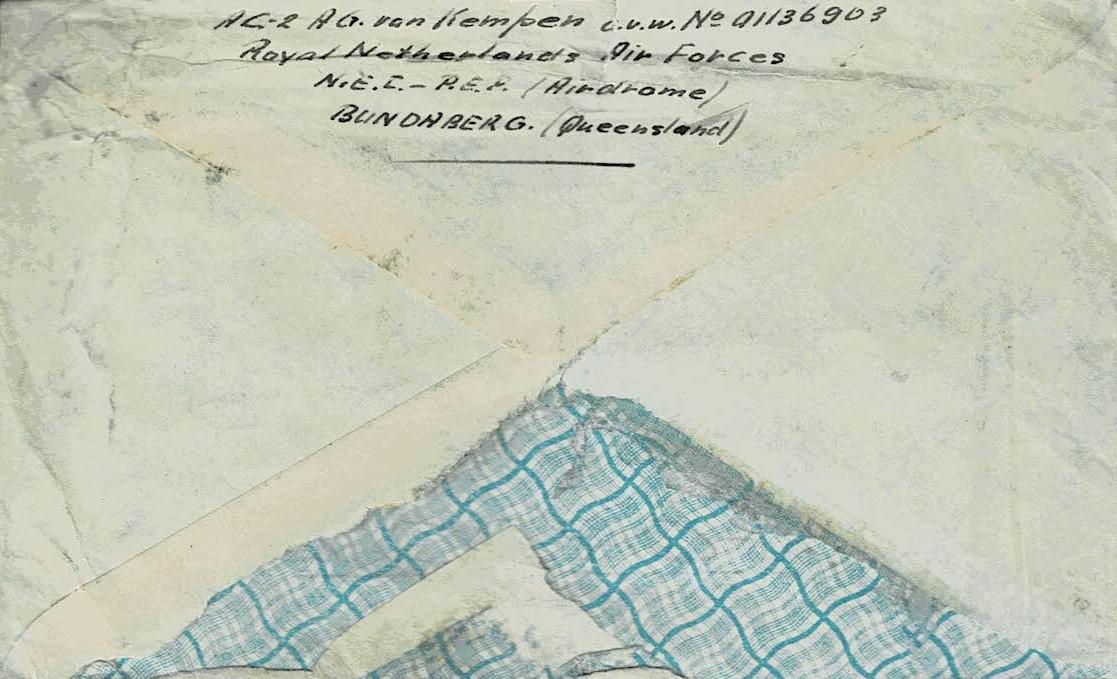 AC-2 A.G. van Kempen c.v.w. No 91136903
Royal Netherlands Air Forces
N.E.I. - P.E.P. (Airdrome)
BUNDABERG. (Queensland)